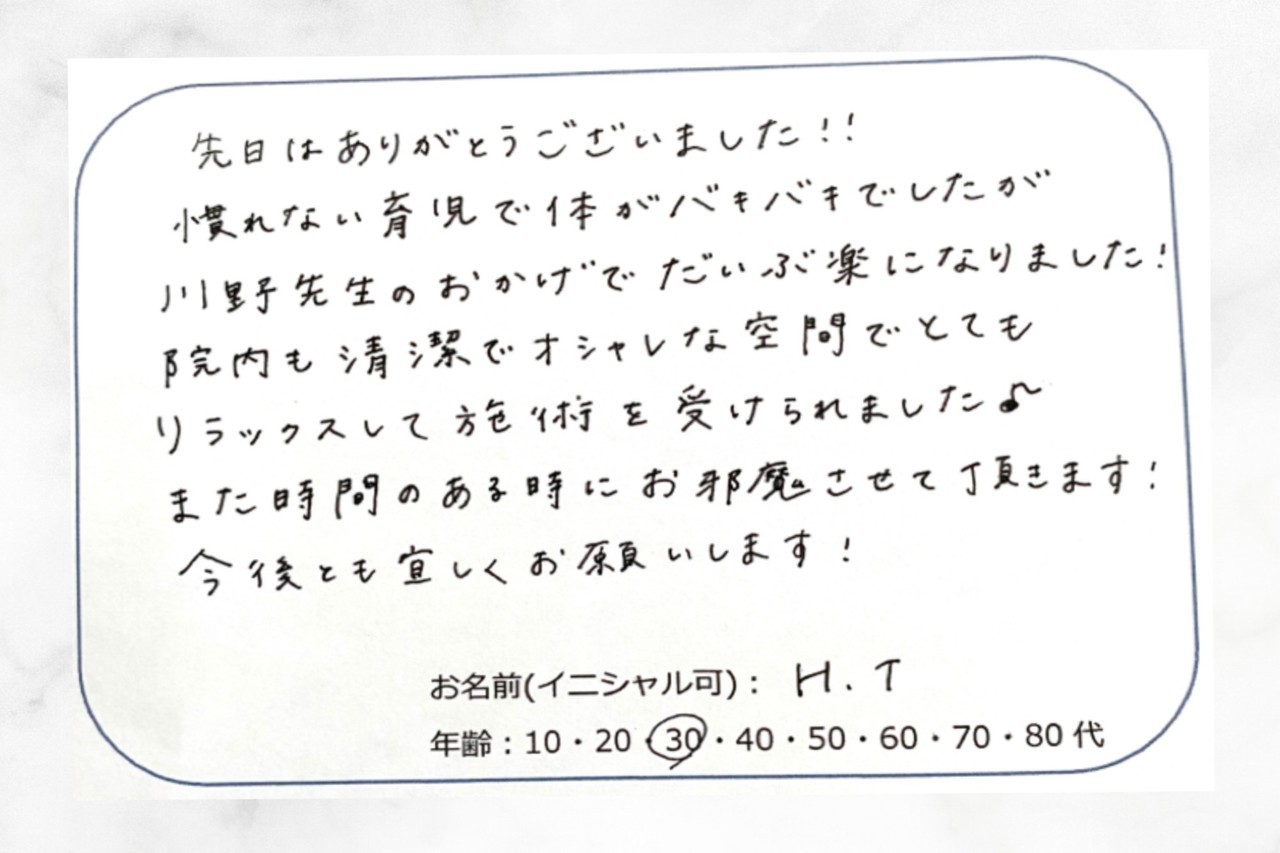 先日はありがとうございました!!
慣れない育児で体がバキバキでしたが
川野先生のおかげでだいぶ楽になりました!
院内も清潔でオシャレな空間でとても
リラックスして施術を受けられました♪
また時間のある時にお邪魔させて頂きます!
今後とも宜しくお願いします!
お名前(イニシャル可): H.T
年齢:10・20・30・40・50・60・70・80 代